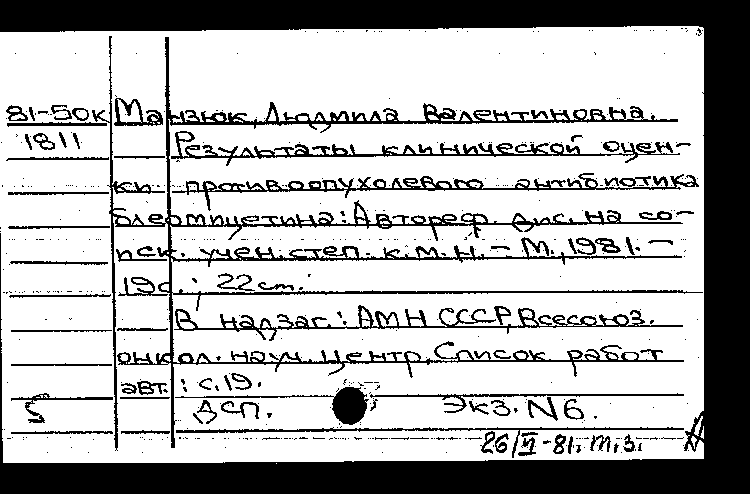 81-50к Манзюк, Людмила Валентиновна.
1811 Результаты клинической оцен-
ки противоопухолевого антибиотика
блеомицетина: Автореф. дис. на со-
иск. учен. степ. к. м. н. - М., 1981. -
19с.; 22 см.
В надзаг.: АМН СССР, Всесоюз.
онкол. науч. центр. Список работ
авт.: с. 19.
ДСП. Экз. N6.
26/VI-81. т. з.